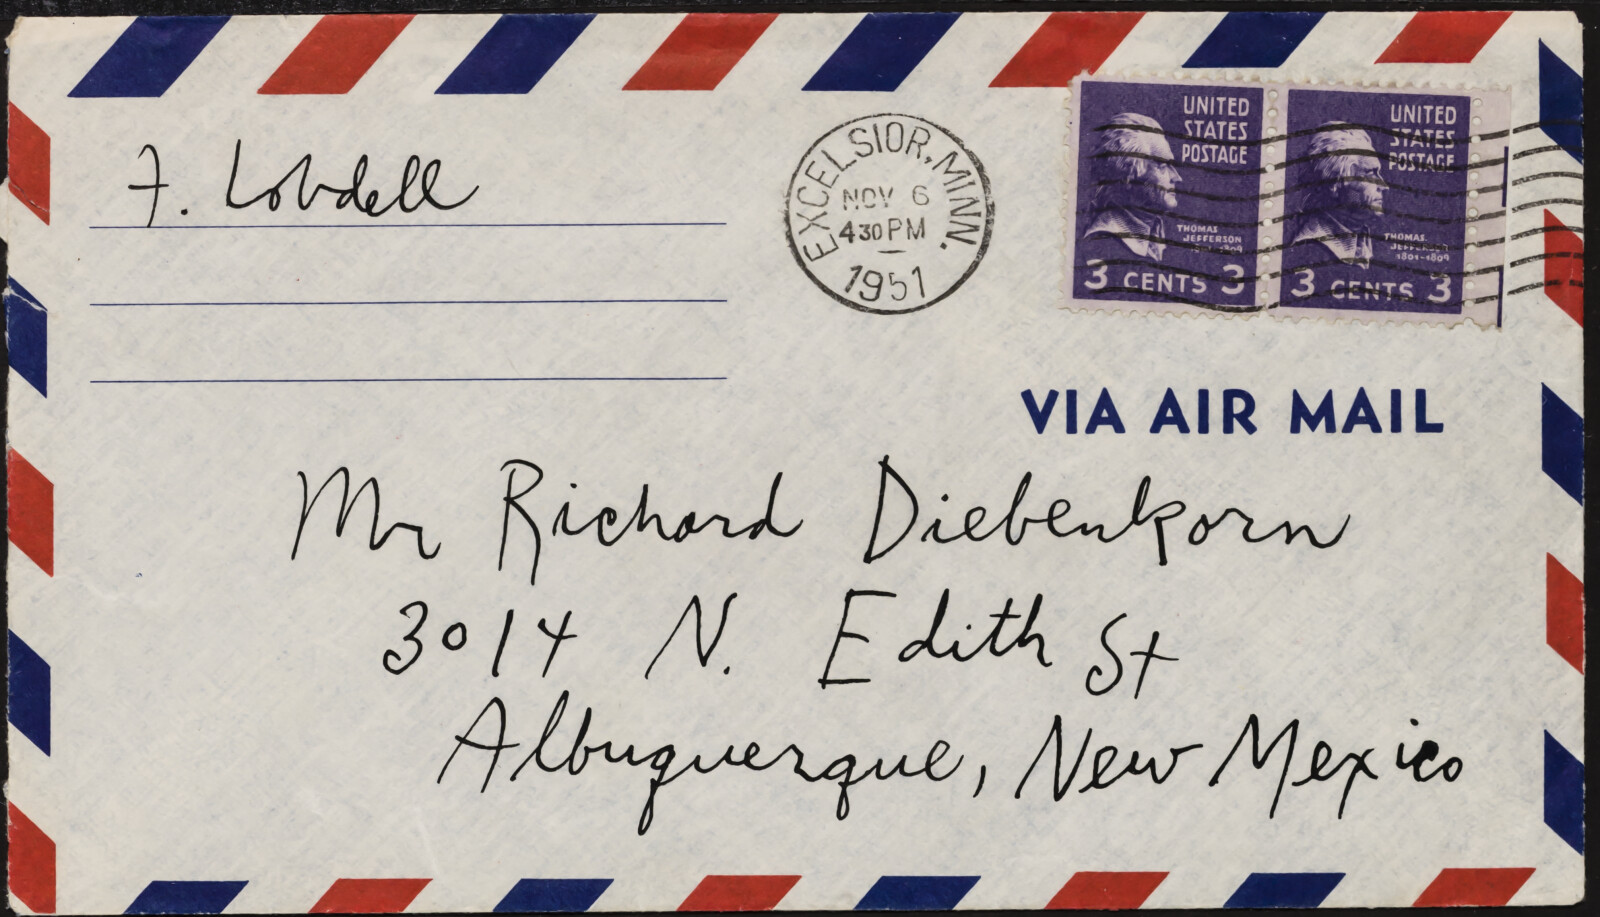 F. Lobdell
EXCELSIOR, MINN.
NOV 6
430 PM
1951
UNITED
STATES
POSTAGE
THOMAS
JEFFERSON
1801-1809
3 CENTS 3
UNITED
STATES
POSTAGE
THOMAS
JEFFERSON
1801-1809
3 CENTS 3
VIA AIR MAIL
Mr Richard Diebenkorn
3014 N. Edith St
Albuquerque, New Mexico